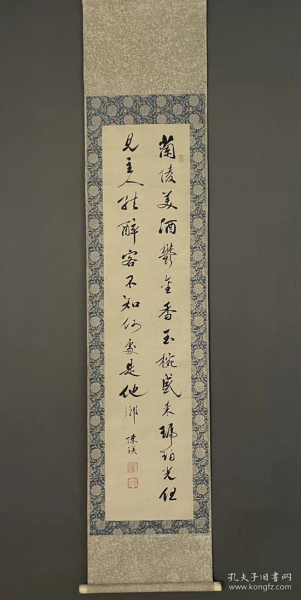 蘭陵美酒鬱金香玉椀盛来琥珀光但
見主人能醉客不知何處是他鄉
陳
孔夫子旧书网
www.kongfz.com